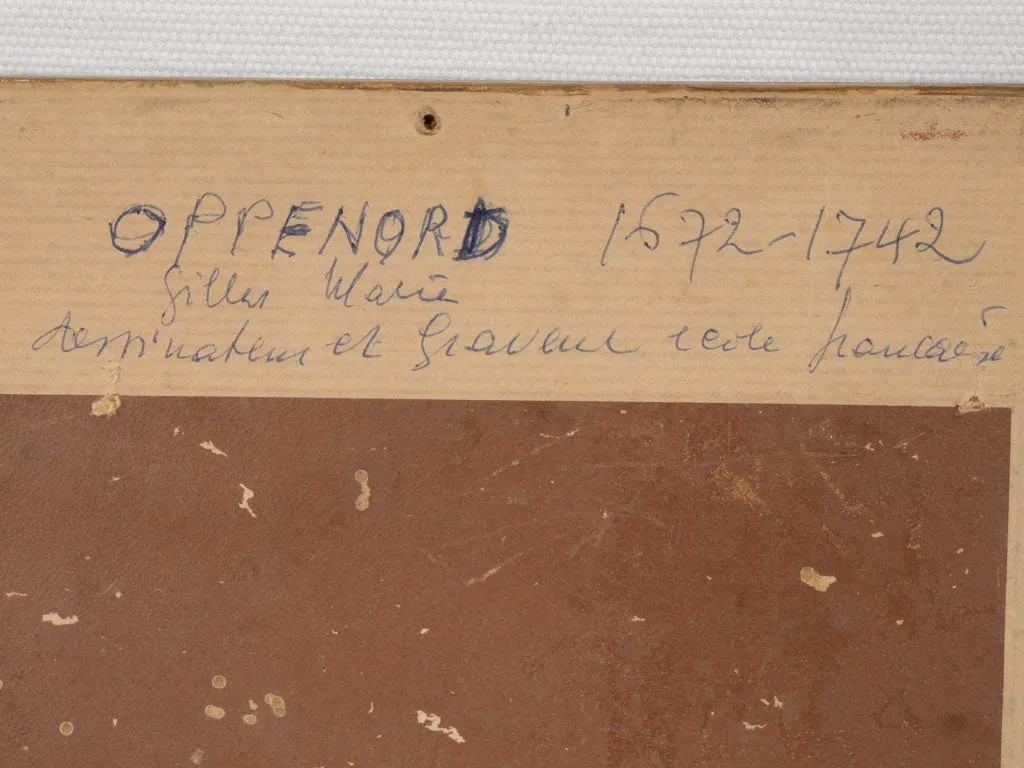 OPPENORD 1672-1742
Gilles Marie
dessinateur et Graveur ecole francaise